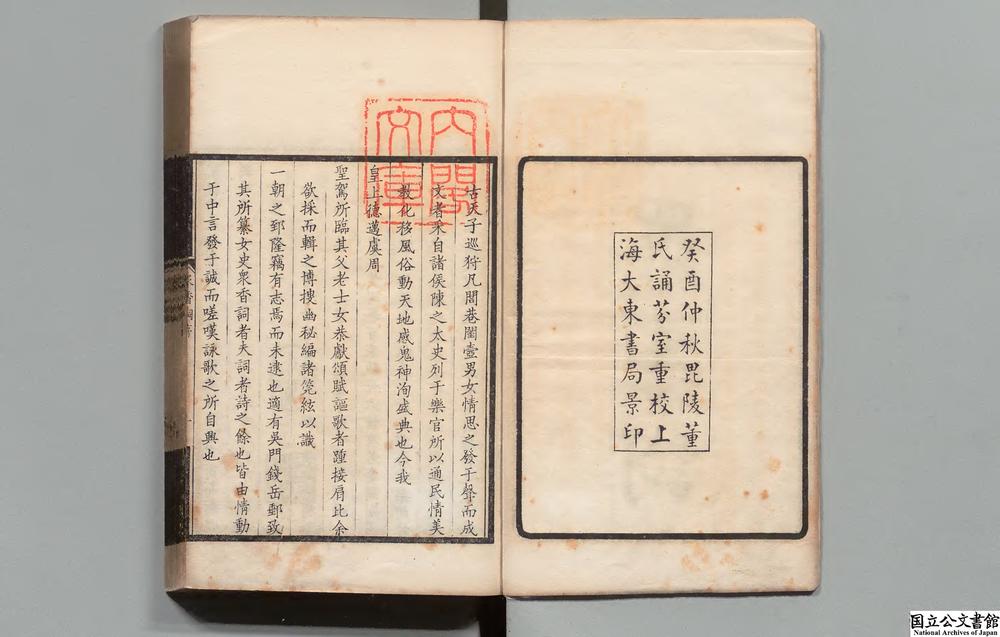 癸酉仲秋毘陵董
氏誦芬室重校上
海大東書局景印
內閣
文庫
古天子巡狩凡閭巷閨壼男女情思之發于聲而成
文者采自諸侯陳之太史列于樂官所以通民情美
教化移風俗動天地感鬼神洵盛典也今我
皇上德邁虞周
聖駕所臨其父老士女恭獻頌賦謳歌者踵接肩比余
欲採而輯之博搜幽秘編諸筦絃以識
一朝之郅隆竊有志焉而未逮也適有吳門錢岳郵致
其所纂女史衆香詞者夫詞者詩之餘也皆由情動
于中言發于誠而嗟嘆詠歌之所自興也
国立公文書館
National Archives of Japan